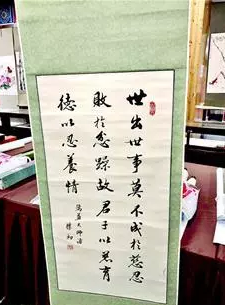 世出世事莫不成於慈忍
敗於忿躁故君子以慈育
德以忍養情
蕅益大師語